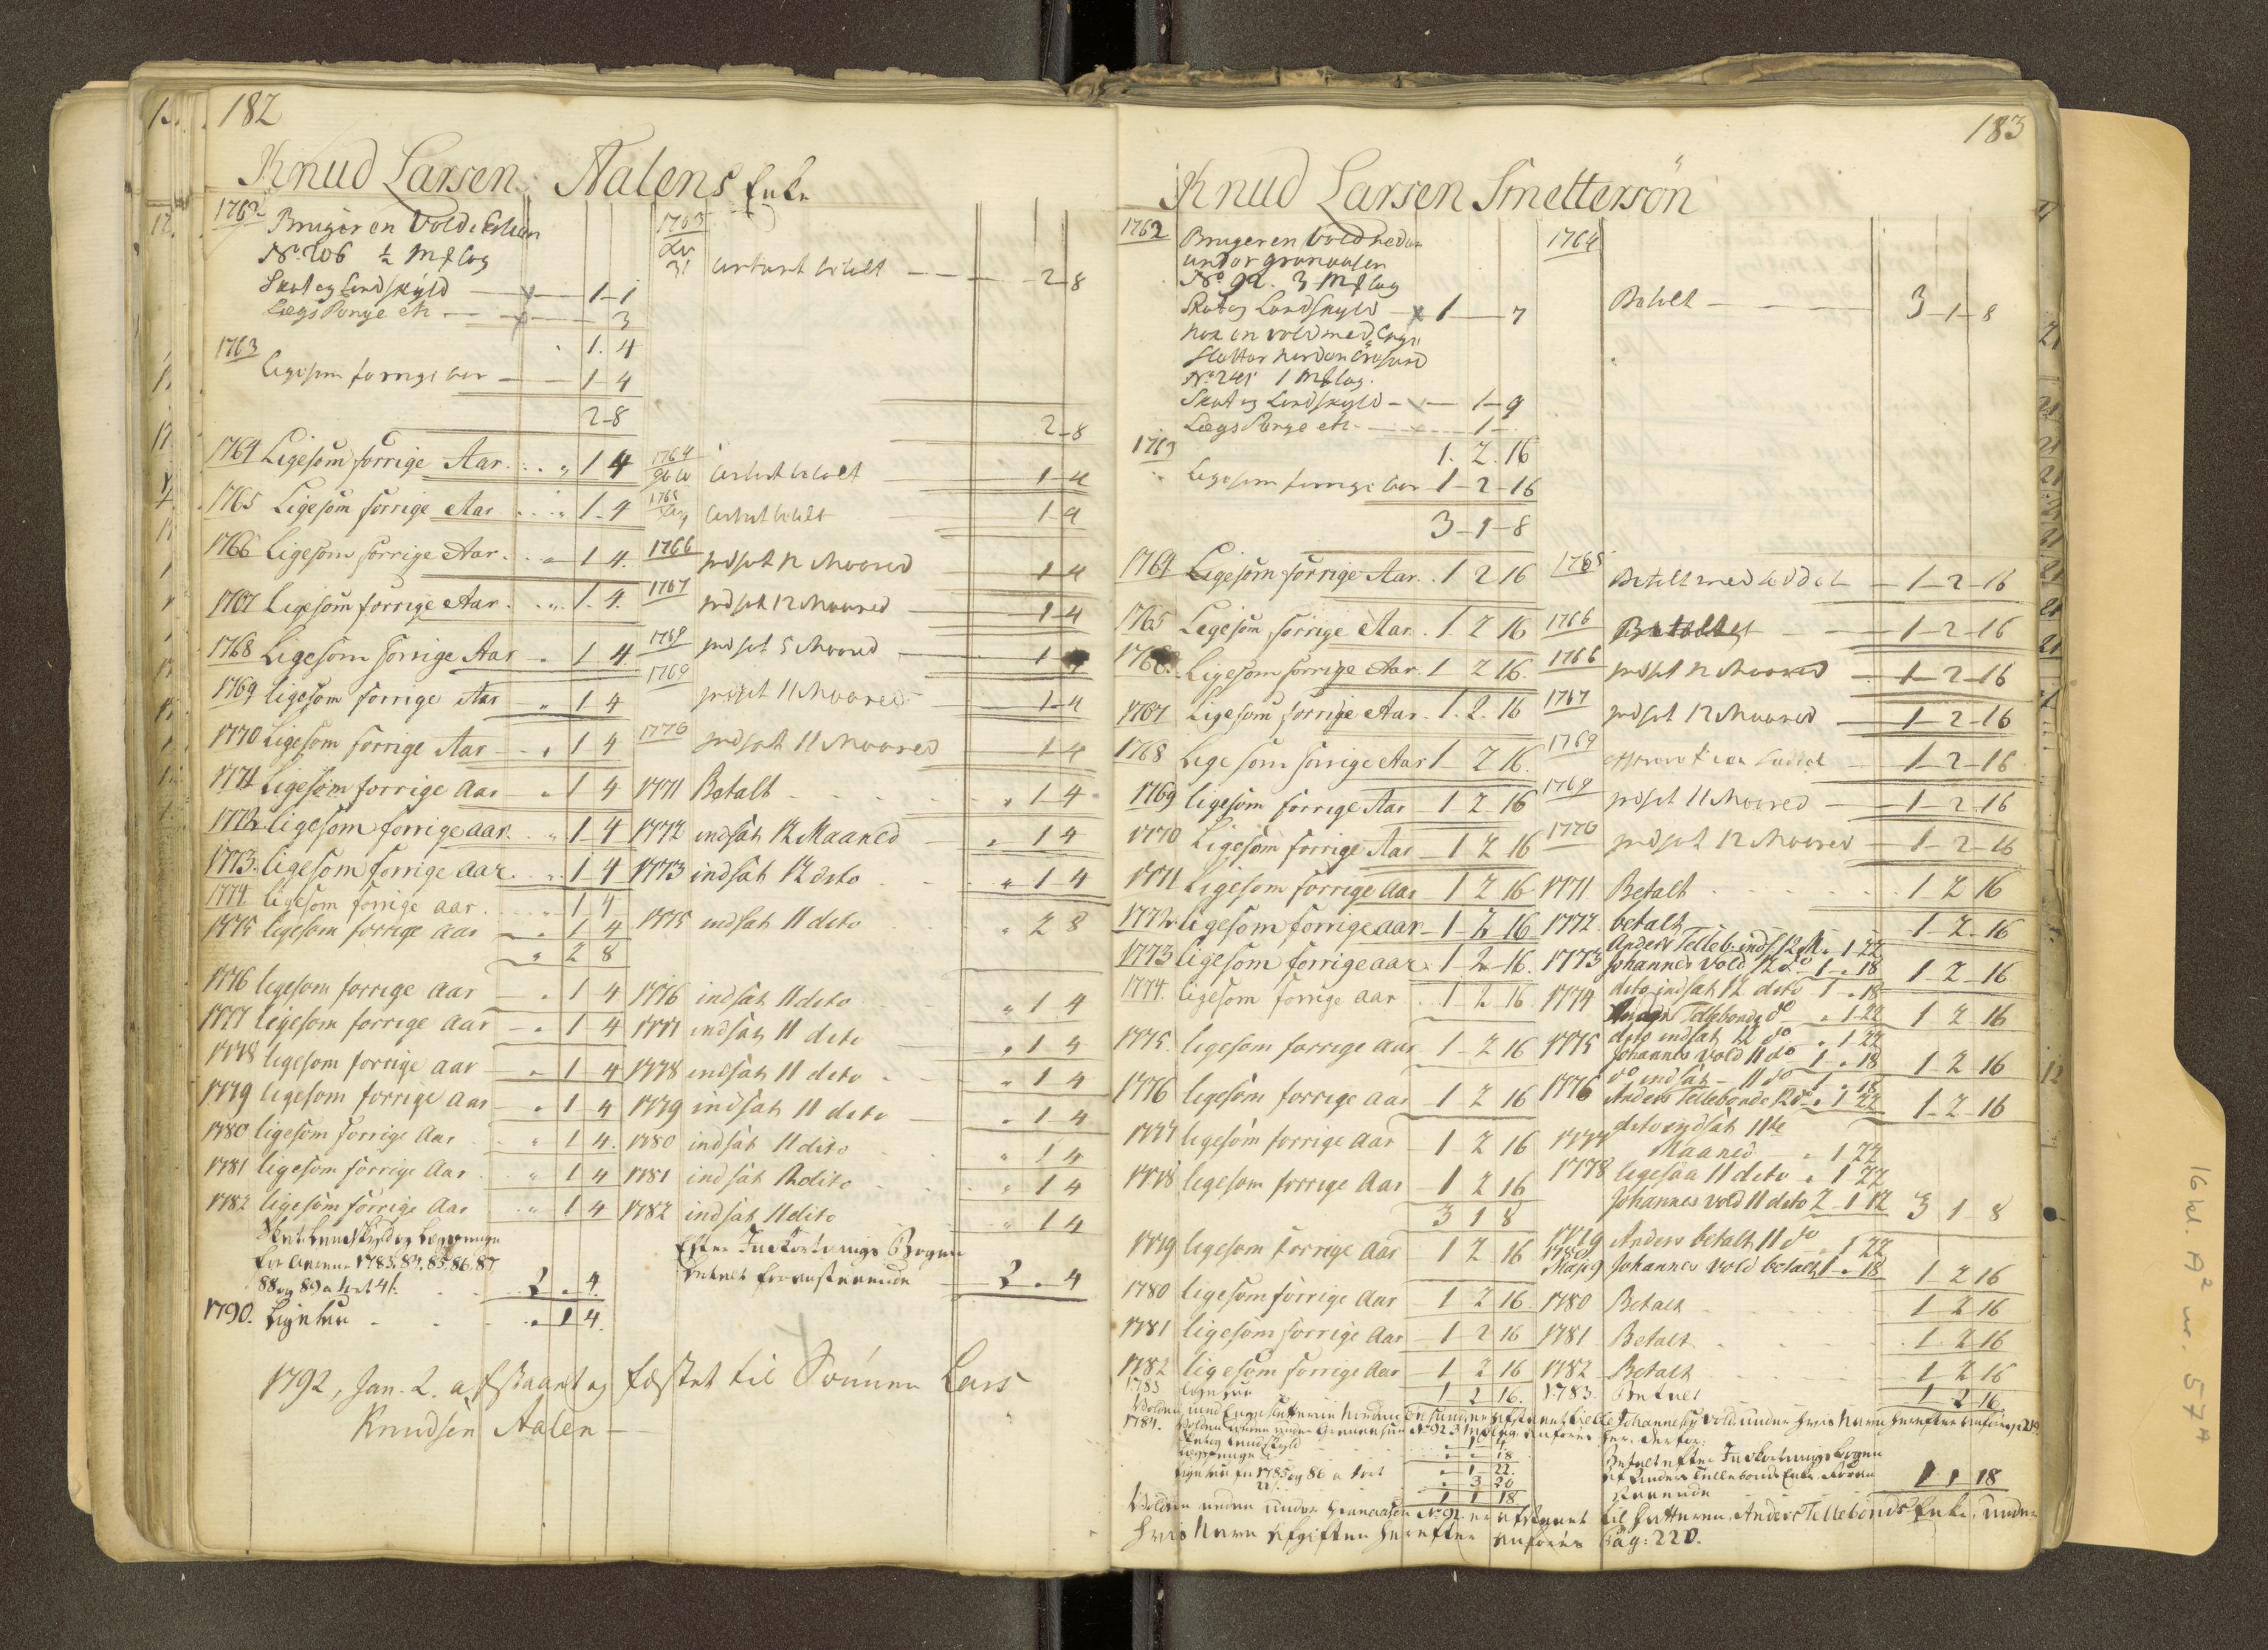 182
Knud Larsen Aalens Enke
1762 Bruger en Vold
No. 206 ½ mællag
Skat og Landskyld — 1-1
Lægs Penge etc — 3
1.4
1763 Ligesom forrige Aar — 1-4
2-8
1764 Ligesom forrige Aar 1 4
1765 Ligesom forrige Aar 1-4
1766 Ligesom forrige Aar 1 4
1767 Ligesom forrige Aar 1.4.
1768 Ligesom forrige Aar 1 4
1769 ligesom forrige Aar 1 4
1770 Ligesom forrige Aar 1 4
1771 Ligesom forrige Aar 1 4
1772 ligesom forrige aar 1 4
1773 ligesom forrige aar 1 4
1774 ligesom forrige aar 1 4
1775 ligesom forrige Aar 1 4
2 8
1776 ligesom forrige Aar 1 4
1777 ligesom forrige Aar 1 4
1778 ligesom forrige Aar 1 4
1779 ligesom forrige Aar 1 4
1780 ligesom forrige Aar 1 4
1781 ligesom forrige Aar 1 4
1782 ligesom forrige Aar 1 4
Skat, Landskyld og Lægspenge
for Aarene 1783. 84. 85. 86. 87.
88 og 89 2 „ 4.
1790. Ligesaa 1 4.
1763
2-8
2-8
1764 betalt 1-4
1765 betalt 1-4
1766 indsat 12 Maaned 1-4
1767 indsat 12 Maaned 1-4
1769 indsat 5 Maaned 1
1769 indsat 11 Maaned 1-4
1770 indsat 11 Maaned 1-4
1771 Betalt 1-4
1772 indsat 12 Maaned 1 4
1773 indsat 12 dito 1 4
1775 indsat 11 dito 2 8
1776 indsat 11 dito 1 4
1777 indsat 11 dito 1 4
1778 indsat 11 dito 1 4
1779 indsat 11 dito 1 4
1780 indsat 11 dito 1 4
1781 indsat 12 dito 1 4
1782 indsat 11 dito 1 4
Efter Indkortnings Bogen
betalt forrestaaende 2 „ 4
1792, Jan. 2. afstaaet og fæstet til Sönnen Lars
Knudsen Aalen
183
Knud Larsen Smettersön
1762 Bruger en Vold neden
under Granaasen
No 92. 3 mællag
Skat og Landskyld 1 — 7
nok en vold med Enge
Sletter norden Örasund
No 241 1 mællag.
Skat og Landskyld 1-9
Lægs Penge etc 1-
1. 2. 16
1763 Ligesom forrige Aar 1-2-16
3-1-8
1764 Ligesom forrige Aar 1 2 16
1765 Ligesom forrige Aar 1 2 16
1766 Ligesom forrige Aar 1 2 16
1767 Ligesom forrige Aar 1. 2. 16
1768 Ligesom forrige Aar 1 2 16
1769 ligesom forrige Aar 1 2 16
1770 Ligesom forrige Aar 1 2 16
1771 Ligesom forrige Aar 1 2 16
1772 ligesom forrige aar 1-2-16
1773 ligesom forrige aar 1-2-16
1774 ligesom forrige aar 1-2 16
1775 ligesom forrige Aar 1-2 16
1776 ligesom forrige Aar 1 2 16
1777 ligesom forrige Aar 1 2 16
1778 ligesom forrige Aar 1 2 16
3 1 8
1779 ligesom forrige Aar 1 2 16
1780 ligesom forrige Aar 1 2 16
1781 ligesom forrige Aar 1-2 16
1782 ligesom forrige Aar 1 2 16
1783 ligesaa 1 2 16
1764 Betalt 3-1-8
1765 Betalt med 1-2-16
1766 Betalt 1-2-16
1766 indsat 12 Maaned 1-2-16
1767 indsat 12 Maaned 1-2-16
1769 1-2-16
1769 indsat 11 Maaned 1-2-16
1770 indsat 12 Maaned 1-2-16
1771 Betalt 1 2 16
1772 betalt 1-2-16
Anders Telleb. inds. 12 M 1-22
1773 Johannes Vold 12 do 1 „ 18 1 2 16
dito indsat 12 dito 1 „ 18
1774 Anders Tellebonde do 1-22 1 2 16
dito indsat 12 do 1-22
1775 Johannes Vold 11 do 1 „ 18 1 2 16
do indsat 11 do 1 „ 18
1776 Anders Tellebonde 12 do 1 22 1-2-16
dito indsat 11te
1777 Maaned 1 22
1778 ligesaa 11 dito 1 22
Johannes Vold 11 dito 2-1 12 3 1 8
1779 Anders betalt 11 do 1 22
1780 Maj 9 Johannes Vold betalt 1 „ 18 1 2 16
1780 Betalt 1 2 16
1781 Betalt 1-2 16
1782 Betalt 1 2 16
1783. Betalt 1 2 16.
Volden med Enge Sletterne Norden Örasund er afstaaet til Johannes Vold under hvis Navn herefter anföres p 219
1784. Volden neden under Granaasen No 92 3 mællag anföres her. derfor:
Skat og Landskyld 1 4.
Lægspenge 18
1 22.
Ligesaa for 1785 og 86 3 20
1 1 18
Betalt efter Indkortningsbogen
af Anders Tellebonds Enke forran
staaende 1 1 18
Volden neden under Granaasen No 92 er afstaaet til Anders Tellebonds Enke, under
hvis Navn Afgiften herefter anföres Pag: 220.
16 kl. A² nr. 57A